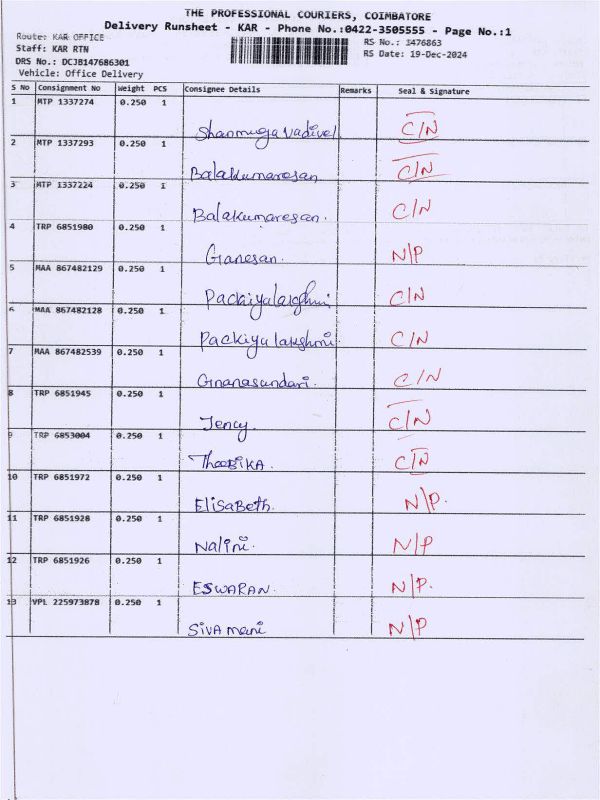 THE PROFESSIONAL COURIERS, COIMBATORE
Delivery Runsheet - KAR - Phone No.:0422-3505555 - Page No.:1
Route: KAR OFFICE RS No.: 3476863
Staff: KAR RTN RS Date: 19-Dec-2024
DRS No.: DCJB147686301
Vehicle: Office Delivery
S No Consignment No Weight PCS Consignee Details Remarks Seal & Signature
1 MTP 1337274 0.250 1
Shanmuga vadivel C/N
2 MTP 1337293 0.250 1
Balakumaresan C/N
3 MTP 1337224 0.250 1
Balakumaresan. C/N
4 TRP 6851980 0.250 1
Ganesan. N/P
5 MAA 867482129 0.250 1
Packiyalakshmi C/N
6 MAA 867482128 0.250 1
Packiyalakshmi C/N
7 MAA 867482539 0.250 1
Gnanasundari. C/N
8 TRP 6851945 0.250 1
Jency. C/N
9 TRP 6853004 0.250 1
C/N
10 TRP 6851972 0.250 1
ElisaBeth. N/P.
11 TRP 6851928 0.250 1
Nalini. N/P
12 TRP 6851926 0.250 1
ESWARAN. N/P.
13 VPL 225973878 0.250 1
Siva mani N/P